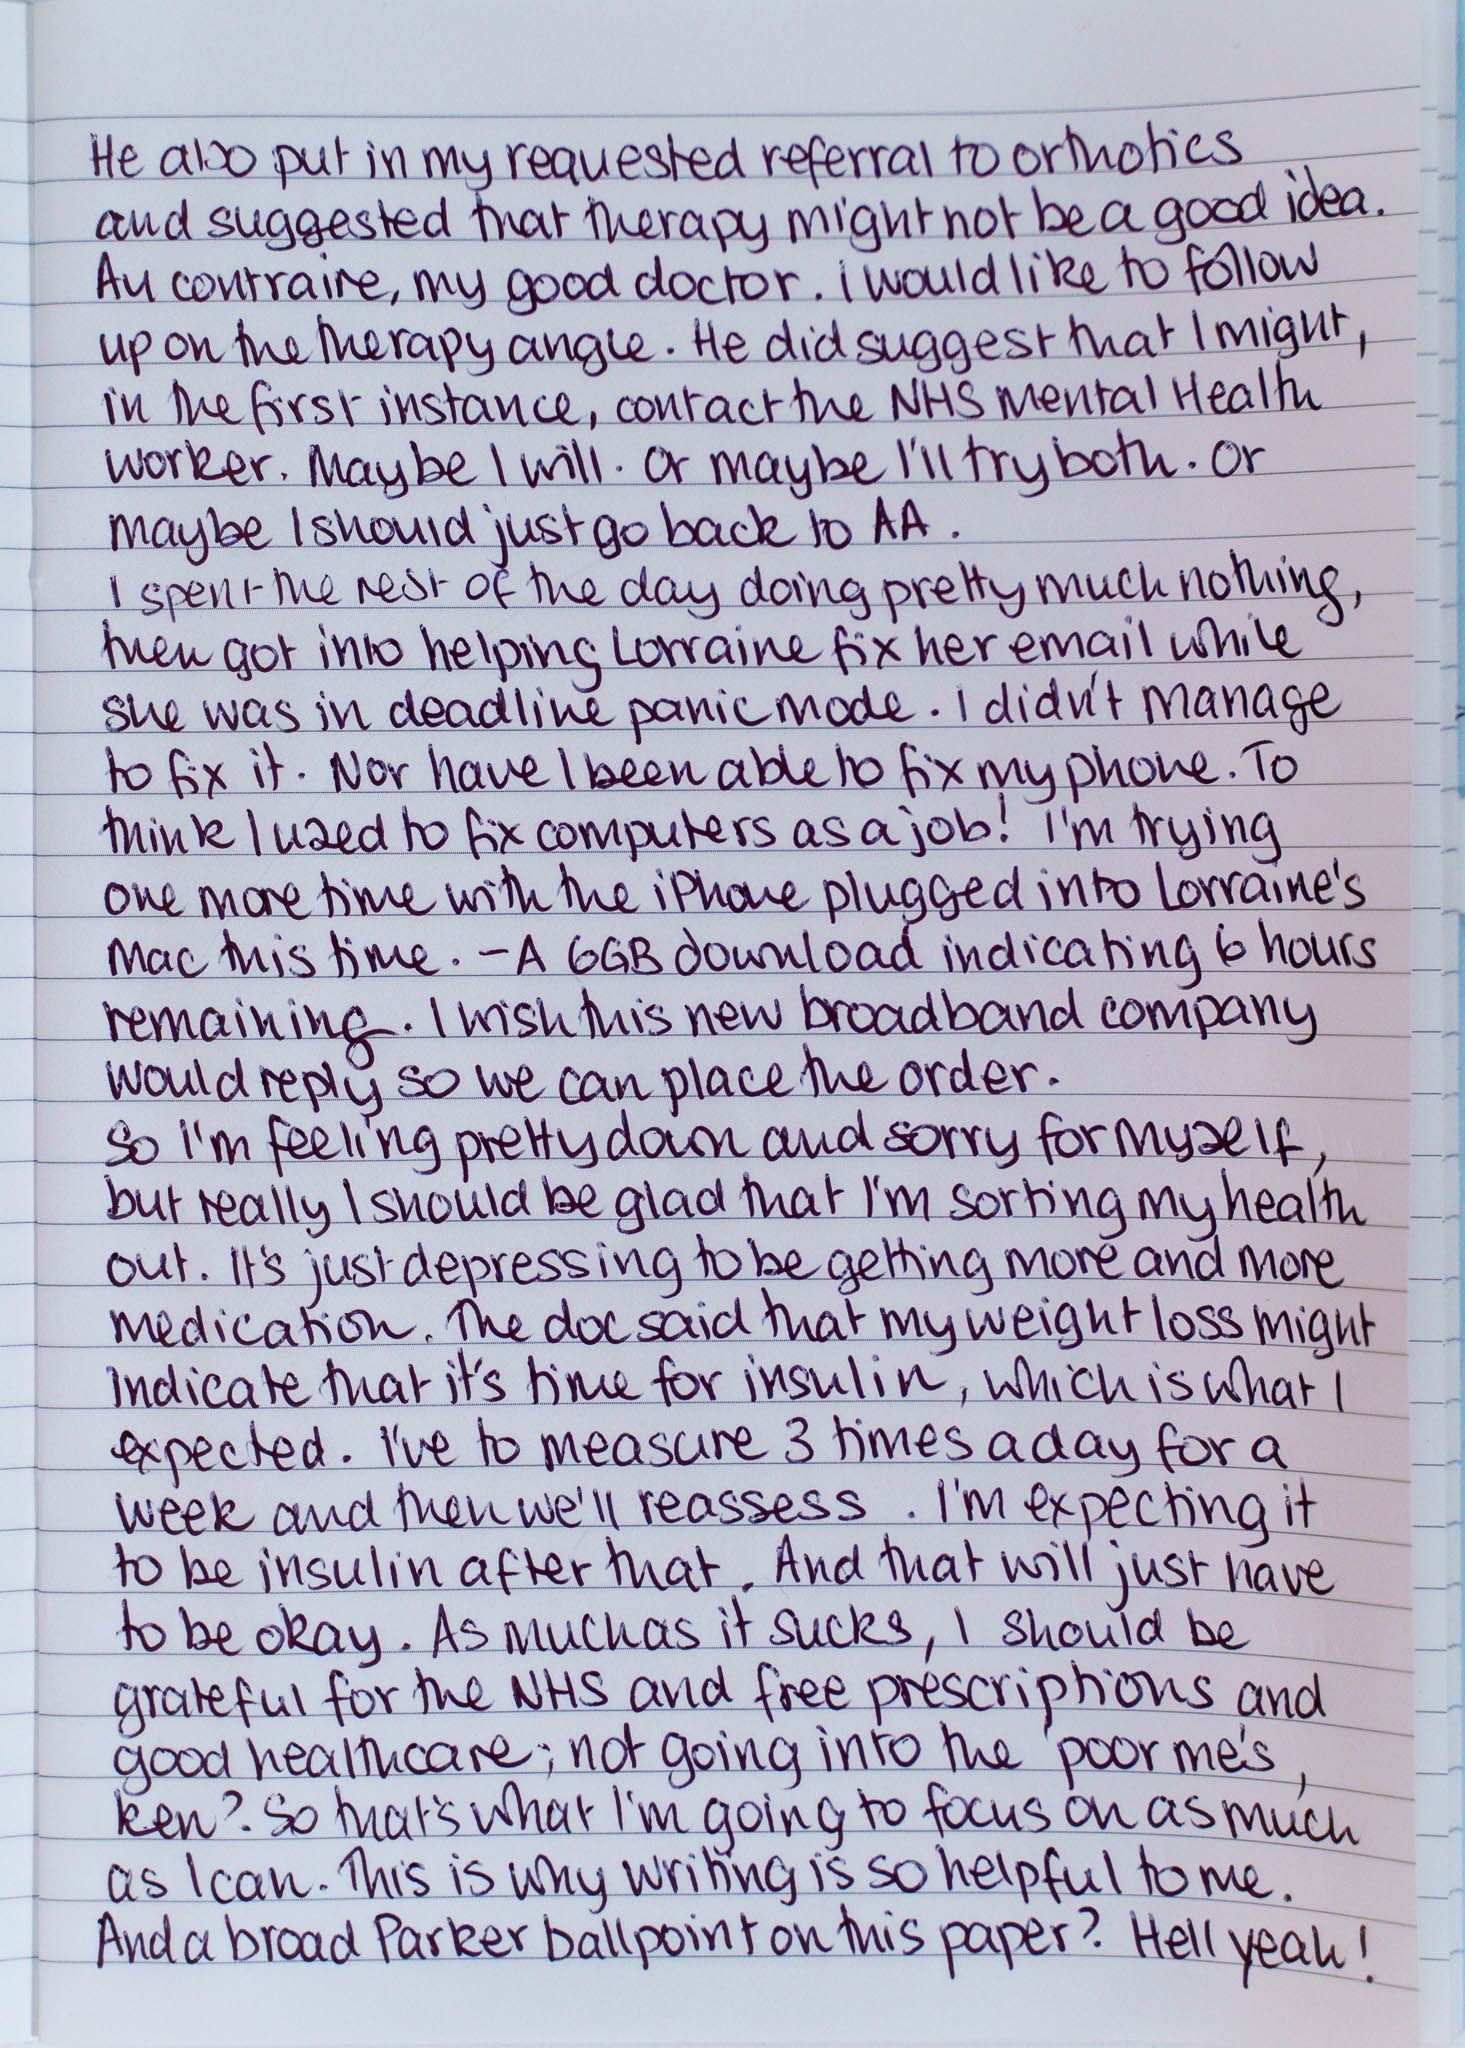 He also put in my requested referral to orthotics
and suggested that therapy might not be a good idea.
Au contraire, my good doctor. I would like to follow
up on the therapy angle. He did suggest that I might,
in the first instance, contact the NHS Mental Health
worker. Maybe I will. Or maybe I'll try both. Or
maybe I should just go back to AA.
I spent the rest of the day doing pretty much nothing,
then got into helping Lorraine fix her email while
she was in deadline panic mode. I didn't manage
to fix it. Nor have I been able to fix my phone. To
think I used to fix computers as a job! I'm trying
one more time with the iPhone plugged into Lorraine's
Mac this time. - A 6GB download indicating 6 hours
remaining. I wish this new broadband company
would reply so we can place the order.
So I'm feeling pretty down and sorry for myself,
but really I should be glad that I'm sorting my health
out. It's just depressing to be getting more and more
medication. The doc said that my weight loss might
indicate that it's time for insulin, which is what I
expected. I've to measure 3 times a day for a
week and then we'll reassess. I'm expecting it
to be insulin after that. And that will just have
to be okay. As much as it sucks, I should be
grateful for the NHS and free prescriptions and
good healthcare; not going into the 'poor me's,
ken? So that's what I'm going to focus on as much
as I can. This is why writing is so helpful to me.
And a broad Parker ballpoint on this paper? Hell yeah!